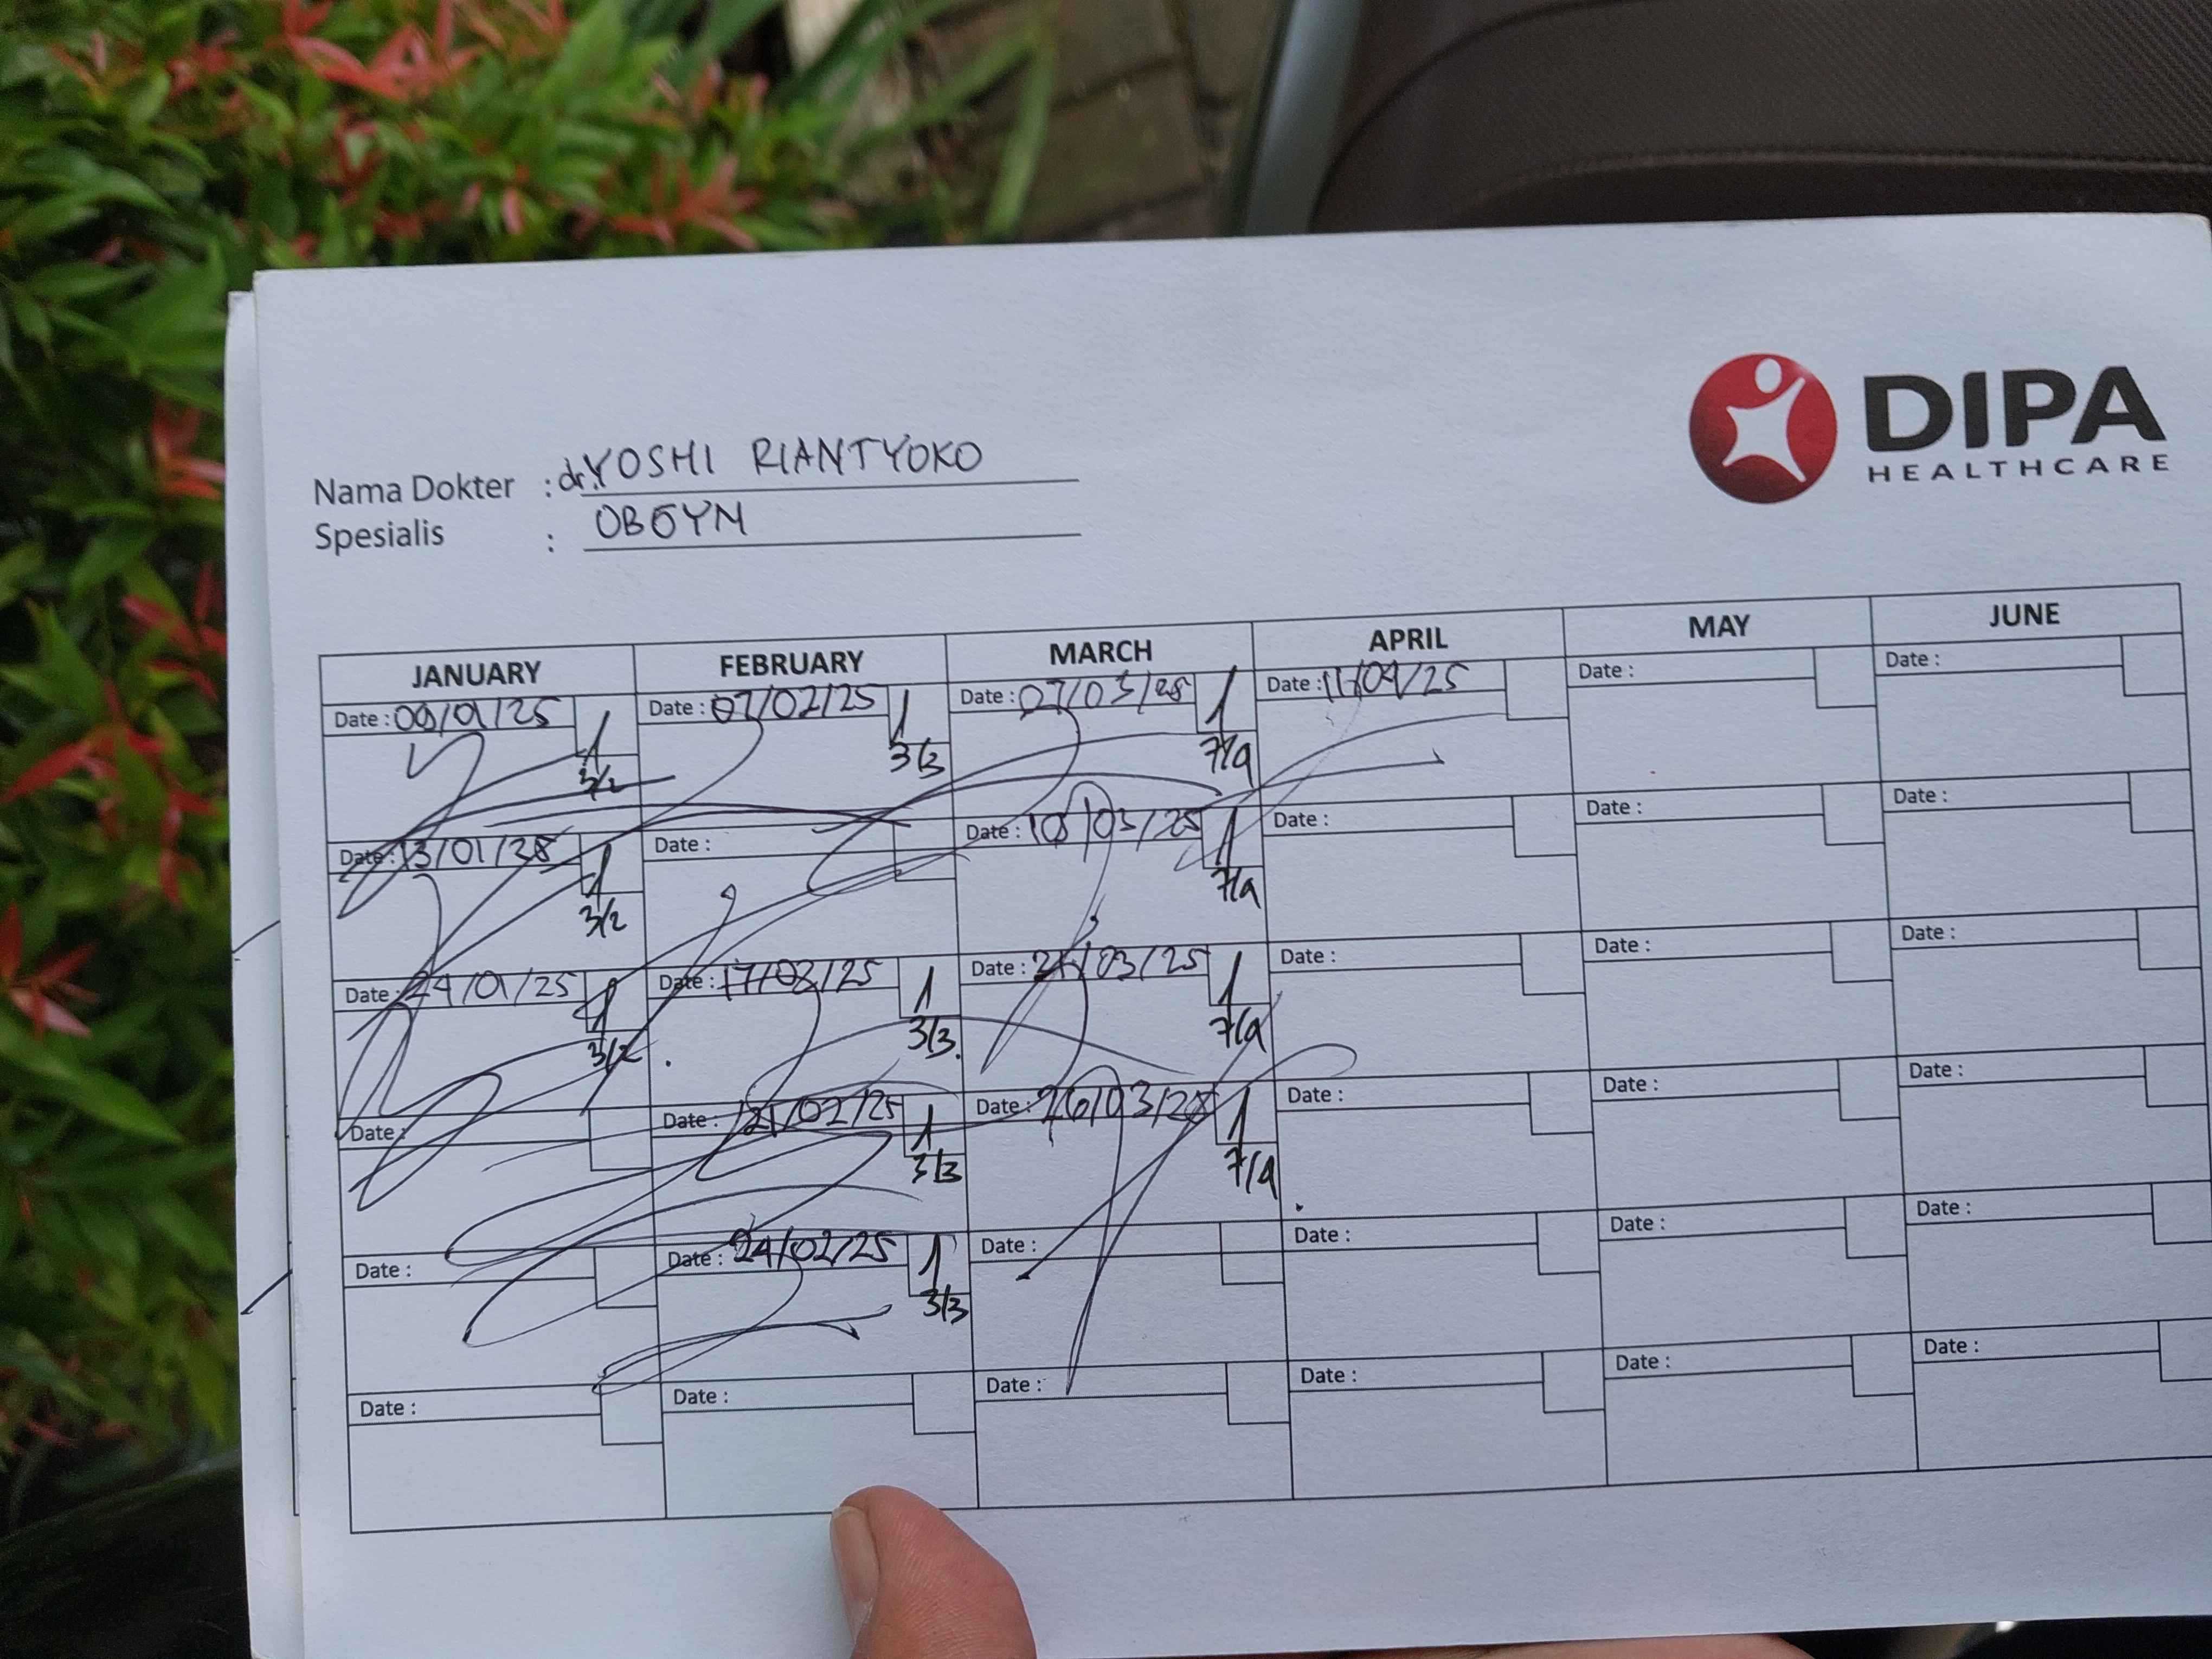 DIPA
HEALTHCARE
Nama Dokter : dr. YOSHI RIANTYOKO
Spesialis : OBGYN
JANUARY FEBRUARY MARCH APRIL MAY JUNE
Date : Date : 07/02/25 Date : 07/03/25 Date : 11/04/25 Date : Date :
3/2 3/3 7/4
Date : 13/01/25 Date : Date : 10/03/25 Date : Date : Date :
3/2 7/4
Date : 24/01/25 Date : 17/02/25 Date : 21/03/25 Date : Date : Date :
3/2 3/3 7/4
Date : Date : 21/02/25 Date : 26/03/25 Date : Date : Date :
3/3 7/4
Date : Date : 24/02/25 Date : Date : Date : Date :
3/3
Date : Date : Date : Date : Date : Date :